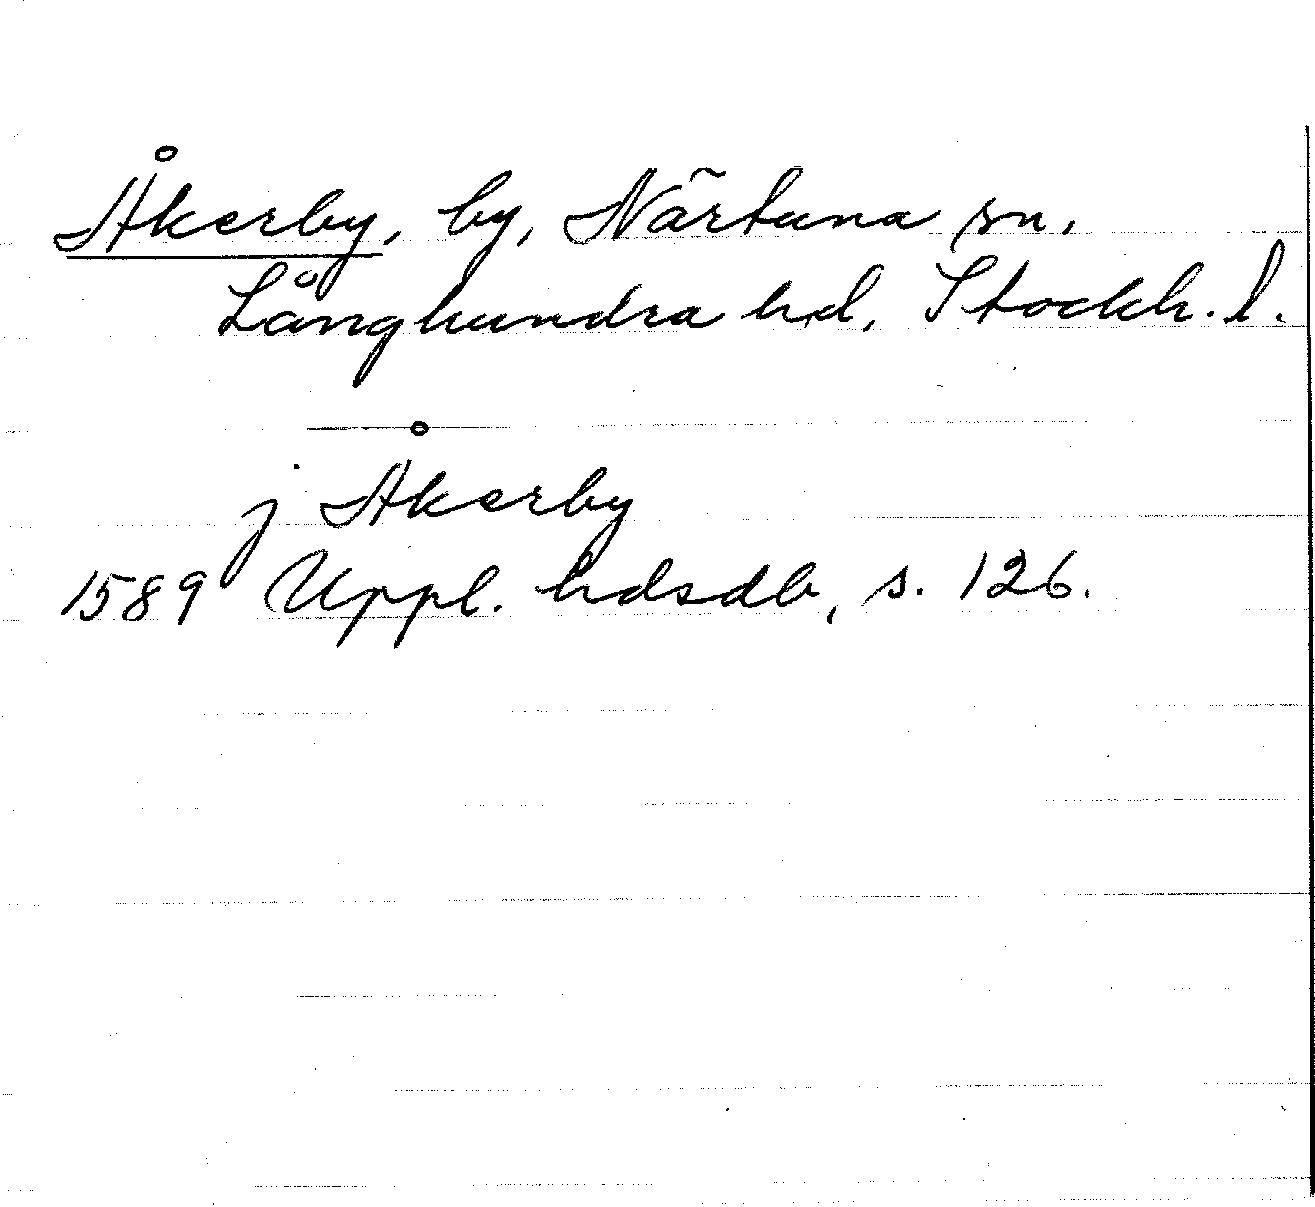 Åkerby, by, Närtuna sn,
Långhundra hd, Stockh. l.
j Åkerby
1589 Uppl. hdsdb, s. 126.